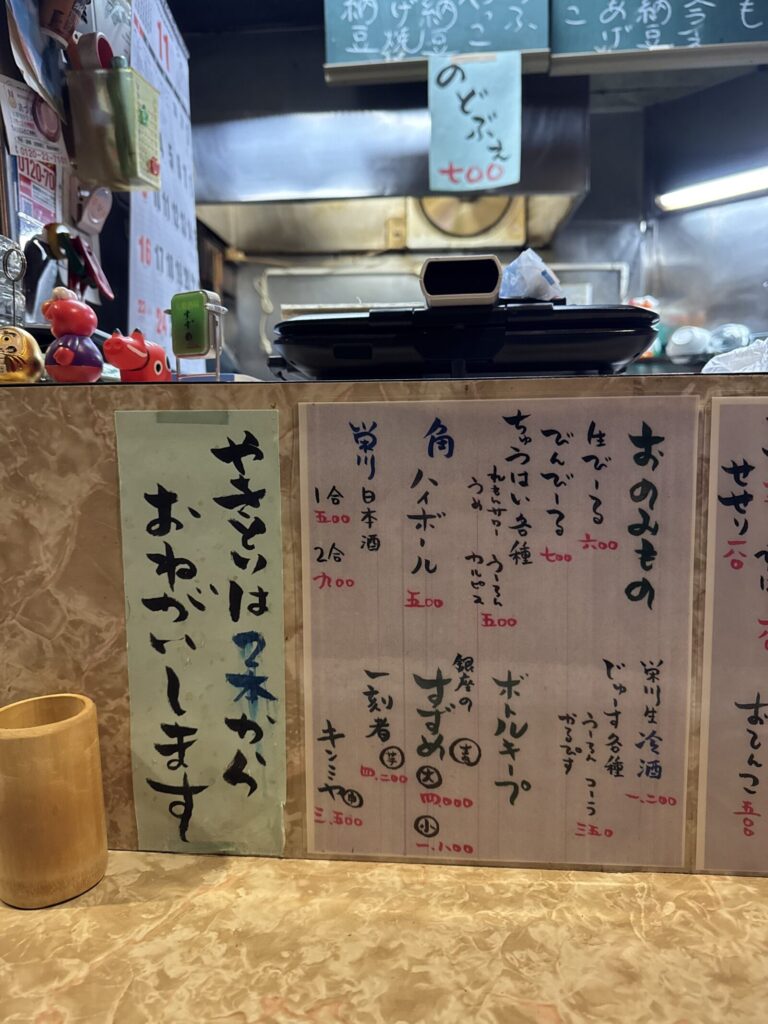 納豆
あげ焼
納豆
やっこ
納豆
あげ
こ
も
のどぶえ
七〇〇
11
16
17
24
0120-22-
0120-70
すずめ
やきとりは2本から
おねがいします
おのみもの
生びーる
六〇〇
びんびーる
七〇〇
ちゅうはい各種
れもんサワー
うーろん
うめ
カルピス
五〇〇
角ハイボール
五〇〇
栄川 日本酒
1合
五〇〇
2合
九〇〇
栄川生冷酒
一、二〇〇
じゅーす各種
うーろん コーラ
かるぴす
三五〇
ボトルキープ
銀座のすずめ
麦
大
四、〇〇〇
小
一、八〇〇
一刻者
芋
四、二〇〇
キンミヤ
三、五〇〇
せせり
一八〇
おしんこ
五〇〇